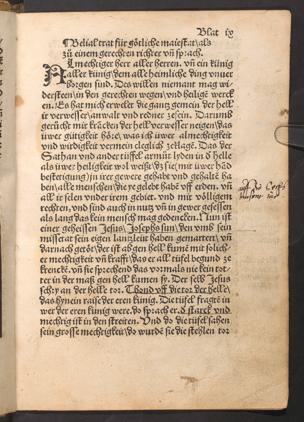 Blat ix
¶ Belial trat für götliche maiestat/als
zů einem gerechten richter vñ sprach.
Almechtiger herr aller herren. vñ ein künig
aller künig/dem alle heimliche ding vnuer
borgen sind. Das willen niemant mag wi-
dersteen/in den gerechten wegen/vnd heilige werck
en. Es hat mich erwelet die gantz gemein der hell/
ir verweser/anwalt vnd redner zesein. Darumb
gerůcht mir krācken der hell verweser neigen/das
iwer gütigkeit höre/was ich iwer almechtigkeit
vnd wirdigkeit vermein cleglich ze klagē. Das der
Sathan vnd ander tüffel armūt lyden in d' helle
als iwer heiligkeit wol weißt/dz sie (mit iwer häd
bestetigung) in irer gewere gehabt vnd gehaltē ha
ben/alle menschen/die ye gelebt habē vff erden. vñ
all ir selen vnder irem gebiet. vnd mit völligem
rechten/vnd sind auch in nutz vñ in gewer gesessen
als lang das kein mensch mag gedencken. Nun ist
einer geheissen Jesus/Josephs sun/den vmb sein
missetat sein eigen lantzleit haben gemartert/vñ
darnach getöt/der ist ab gen hell kumē mit solich-
er mechtigkeit vñ krafft/das er all tüfel begund ze
krenckē. vñ sie sprechend das vormals nie kein tot-
ter in der maß gen hell kumen sy. Der selb Jesus
schry an der helle tor. Thond vff die tor der helle/
das hynein raise der eren künig. Die tüfel fragtē in
wer der eren künig were. do sprach er. d' starck vnd
mechtig ist in den streiten. Vnd do die tüfel sahen
sein grosse mechtigkeit/do wurdē sie die stehlen tor